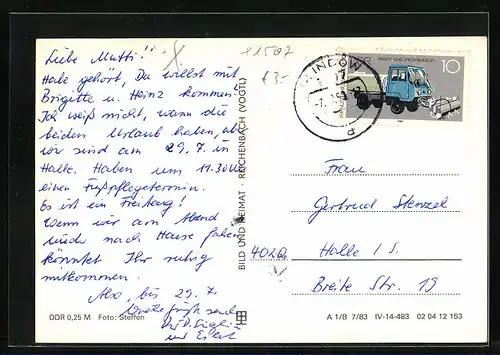 Liebe Mutti!
Habe gehört, Du willst mit
Brigitte u. Heinz kommen.
Ich weiß nicht, wann die
beiden Urlaub haben, aber
wir sind am 29.7. in
Halle. Haben um 11.30 Uhr
einen Fußpflegetermin.
Es ist ein Freitag!
Wenn wir am Abend
wieder nach Hause fahren
könntet Ihr ruhig
mitkommen.
Also, bis 29.7.
DDR 0,25 M Foto: Steffen
BILD UND HEIMAT · REICHENBACH (VOGTL)
€ 3-
LINDOW
DDR
10
Frau
Gertrud Stenzel
4020
Halle / S.
Breite Str. 19
A 1/B 7/83 IV-14-483 02 04 12 153